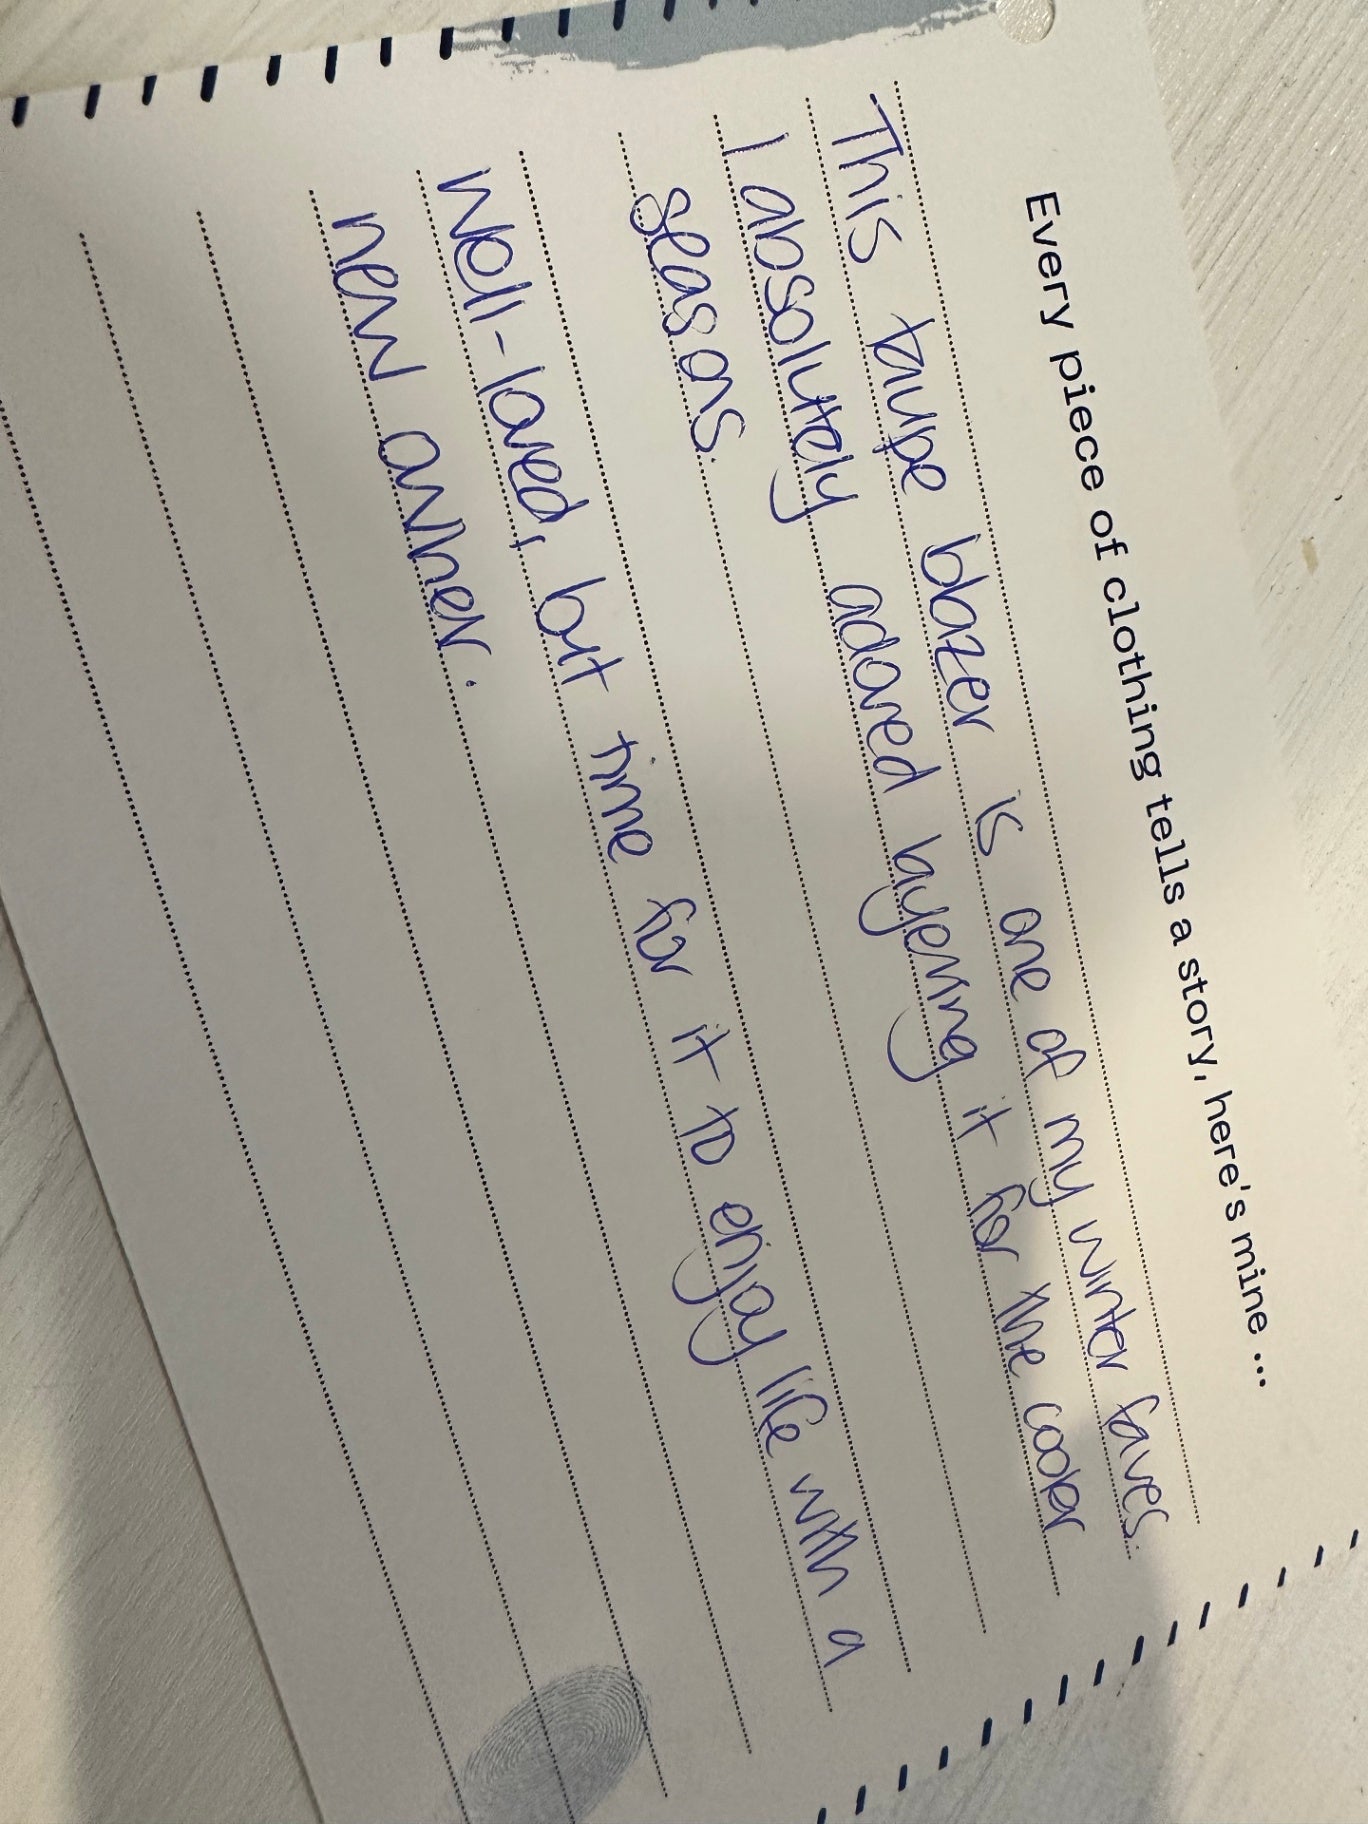 Every piece of clothing tells a story, here's mine ...
This taupe blazer is one of my winter faves.
I absolutely adored layering it for the cooler
seasons.
Well-loved, but time for it to enjoy life with a
new owner.